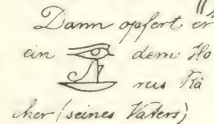 Dann opfert er
ein dem Ho
rus Rä
cher (seines Vaters)